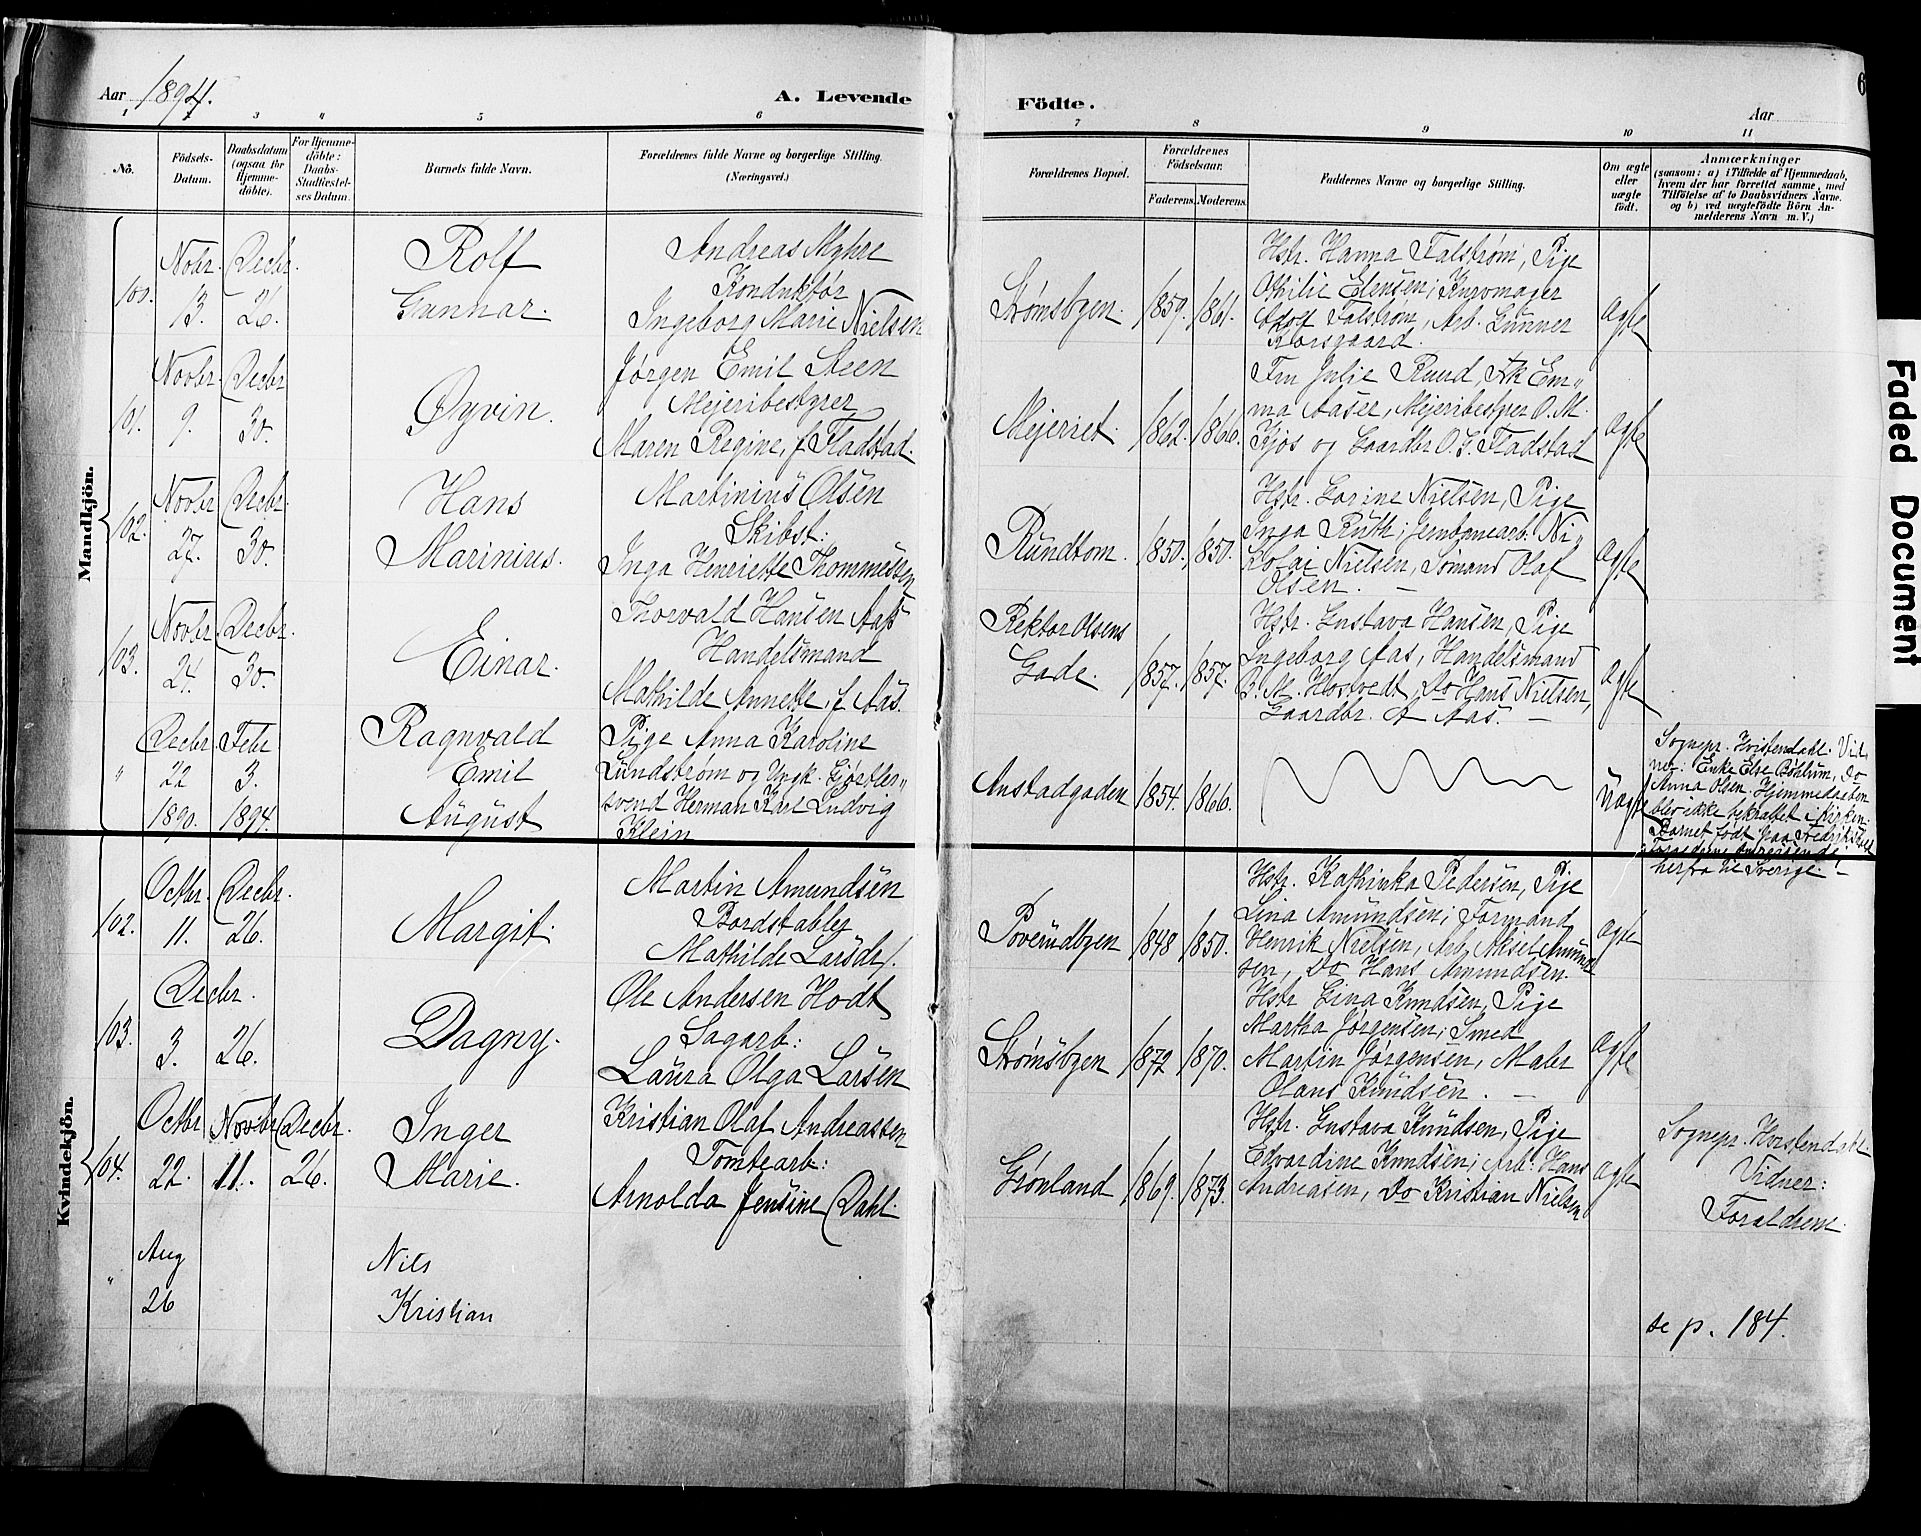 Aar 1894.
A. Levende Födte.
Aar
6
1 2 3 4 5 6 7 8 9 10 11
No.
Födsels-Datum.
Daabsdatum (ogsaa for Hjemme-döbte).
For Hjemme-döbte: Daabs-Stadfæstel-ses Datum.
Barnets fulde Navn.
Forældrenes fulde Navne og borgerlige Stilling.
(Næringsvei.)
Forældrenes Bopæl.
Forældrenes Födselsaar.
Faderens. Moderens.
Faddernes Navne og borgerlige Stilling.
Om ægte eller uægte födt.
Anmærkninger
(saasom: a) i Tilfælde af Hjemmedaab, hvem der har forrettet samme, med Tilföielse af to Daabsvidners Navne. og b) ved uægtefödte Börn An-melderens Navn m. V.)
Mandkjön.
100.
Novbr. 13.
Decbr. 26.
Rolf
Gunnar.
Andreas Myhre
Konduktør
Ingeborg Marie Nielsen
Strømsbyen.
1859. 1861.
Hstr. Hanna Falstrøm, Pige
Othilie Elensen; Kurvmager
Adolf Falstrøm, Arb. Gunner
Korsgaard.
ægte
101.
Novbr. 9.
Decbr 30.
Øyvin.
Jørgen Emil Steen
Mejeribestyrer
Maren Regine, f Fladstad.
Mejeriet.
1862. 1866.
Fru Julie Ruud, Frk Em-
ma Aaser, Mejeribestyrer O. M.
Kjos og Gaardbr O. G. Fladstad
ægte
102.
Novbr 27.
Decbr. 30.
Hans
Marinius.
Martinius Olsen
Skibst:
Inga Henriette Thommessen
Rundtom.
1850. 1850.
Hstr. Gorine Nielsen, Pige
Inga Ruth; Jernbanearb. Ni-
kolai Nielsen, Sømand Olaf
Olsen. –
ægte
103.
Novbr 24.
Decbr. 30.
Einar.
Thorvald Hansen Aas
Handelsmand
Mathilde Annette, f Aas.
Rektor Olsens
Gade.
1857. 1857.
Hstr. Gustava Hansen, Pige
Ingeborg Aas, Handelsmand
B. M. Horvedt, Do Hans Nielsen,
Gaardbr. A Aas. –
ægte
"
Decbr 22 1890.
Febr 3. 1894.
Ragnvald
Emil
August
Pige Anna Karoline
Lundstrøm og Ungk. Gjørtler-
svend Herman Karl Ludvig
Klein
Anstadgaden
1854. 1866.
Uægte
Sognepr. Hvistendahl. Vid-
ner: Enke Else Bøhlum, Do
Anna Olsen. Hjemmedaaben
blev ikke bekræftet i Kirken.
Barnet født paa Fredrikshald
Forældrene afreisende
herfra til Sverige. –
Kvindekjön.
102.
Octbr. 11.
Decbr. 26.
Margit.
Martin Amundsen
Bordstabler
Mathilde Larsdr.
Poverudbyen
1848 1850.
Hstr. Kathinka Pedersen, Pige
Lina Amundsen; Formand
Henrik Nielsen, Arb. Aksel Amund-
sen, Do Hans Amundsen.
ægte
103.
Decbr. 3. 26.
Dagny.
Ole Andersen Hodt
Sagarb:
Laura Olga Larsen
Strømsbyen
1872 1870.
Hstr Lina Knudsen, Pige
Martha Jørgensen; Smed
Martin Jørgensen, Maler
Olaus Knudsen. –
ægte
104.
Octbr 22.
Novbr 11.
Decbr. 26.
Inger
Marie.
Kristian Olaf Andreassen
Tomtearb:
Arnolda Jensine Dahl.
Grønland
1869. 1873.
Hstr. Gustava Knudsen, Pige
Edvardine Knudsen; Arb: Hans
Andreasen, Do Kristian Nielsen
ægte
Sognepr. Hvistendahl
Vidner:
Forældrene.
"
Aug 26
Nils
Kristian
se p. 184.
Faded Document